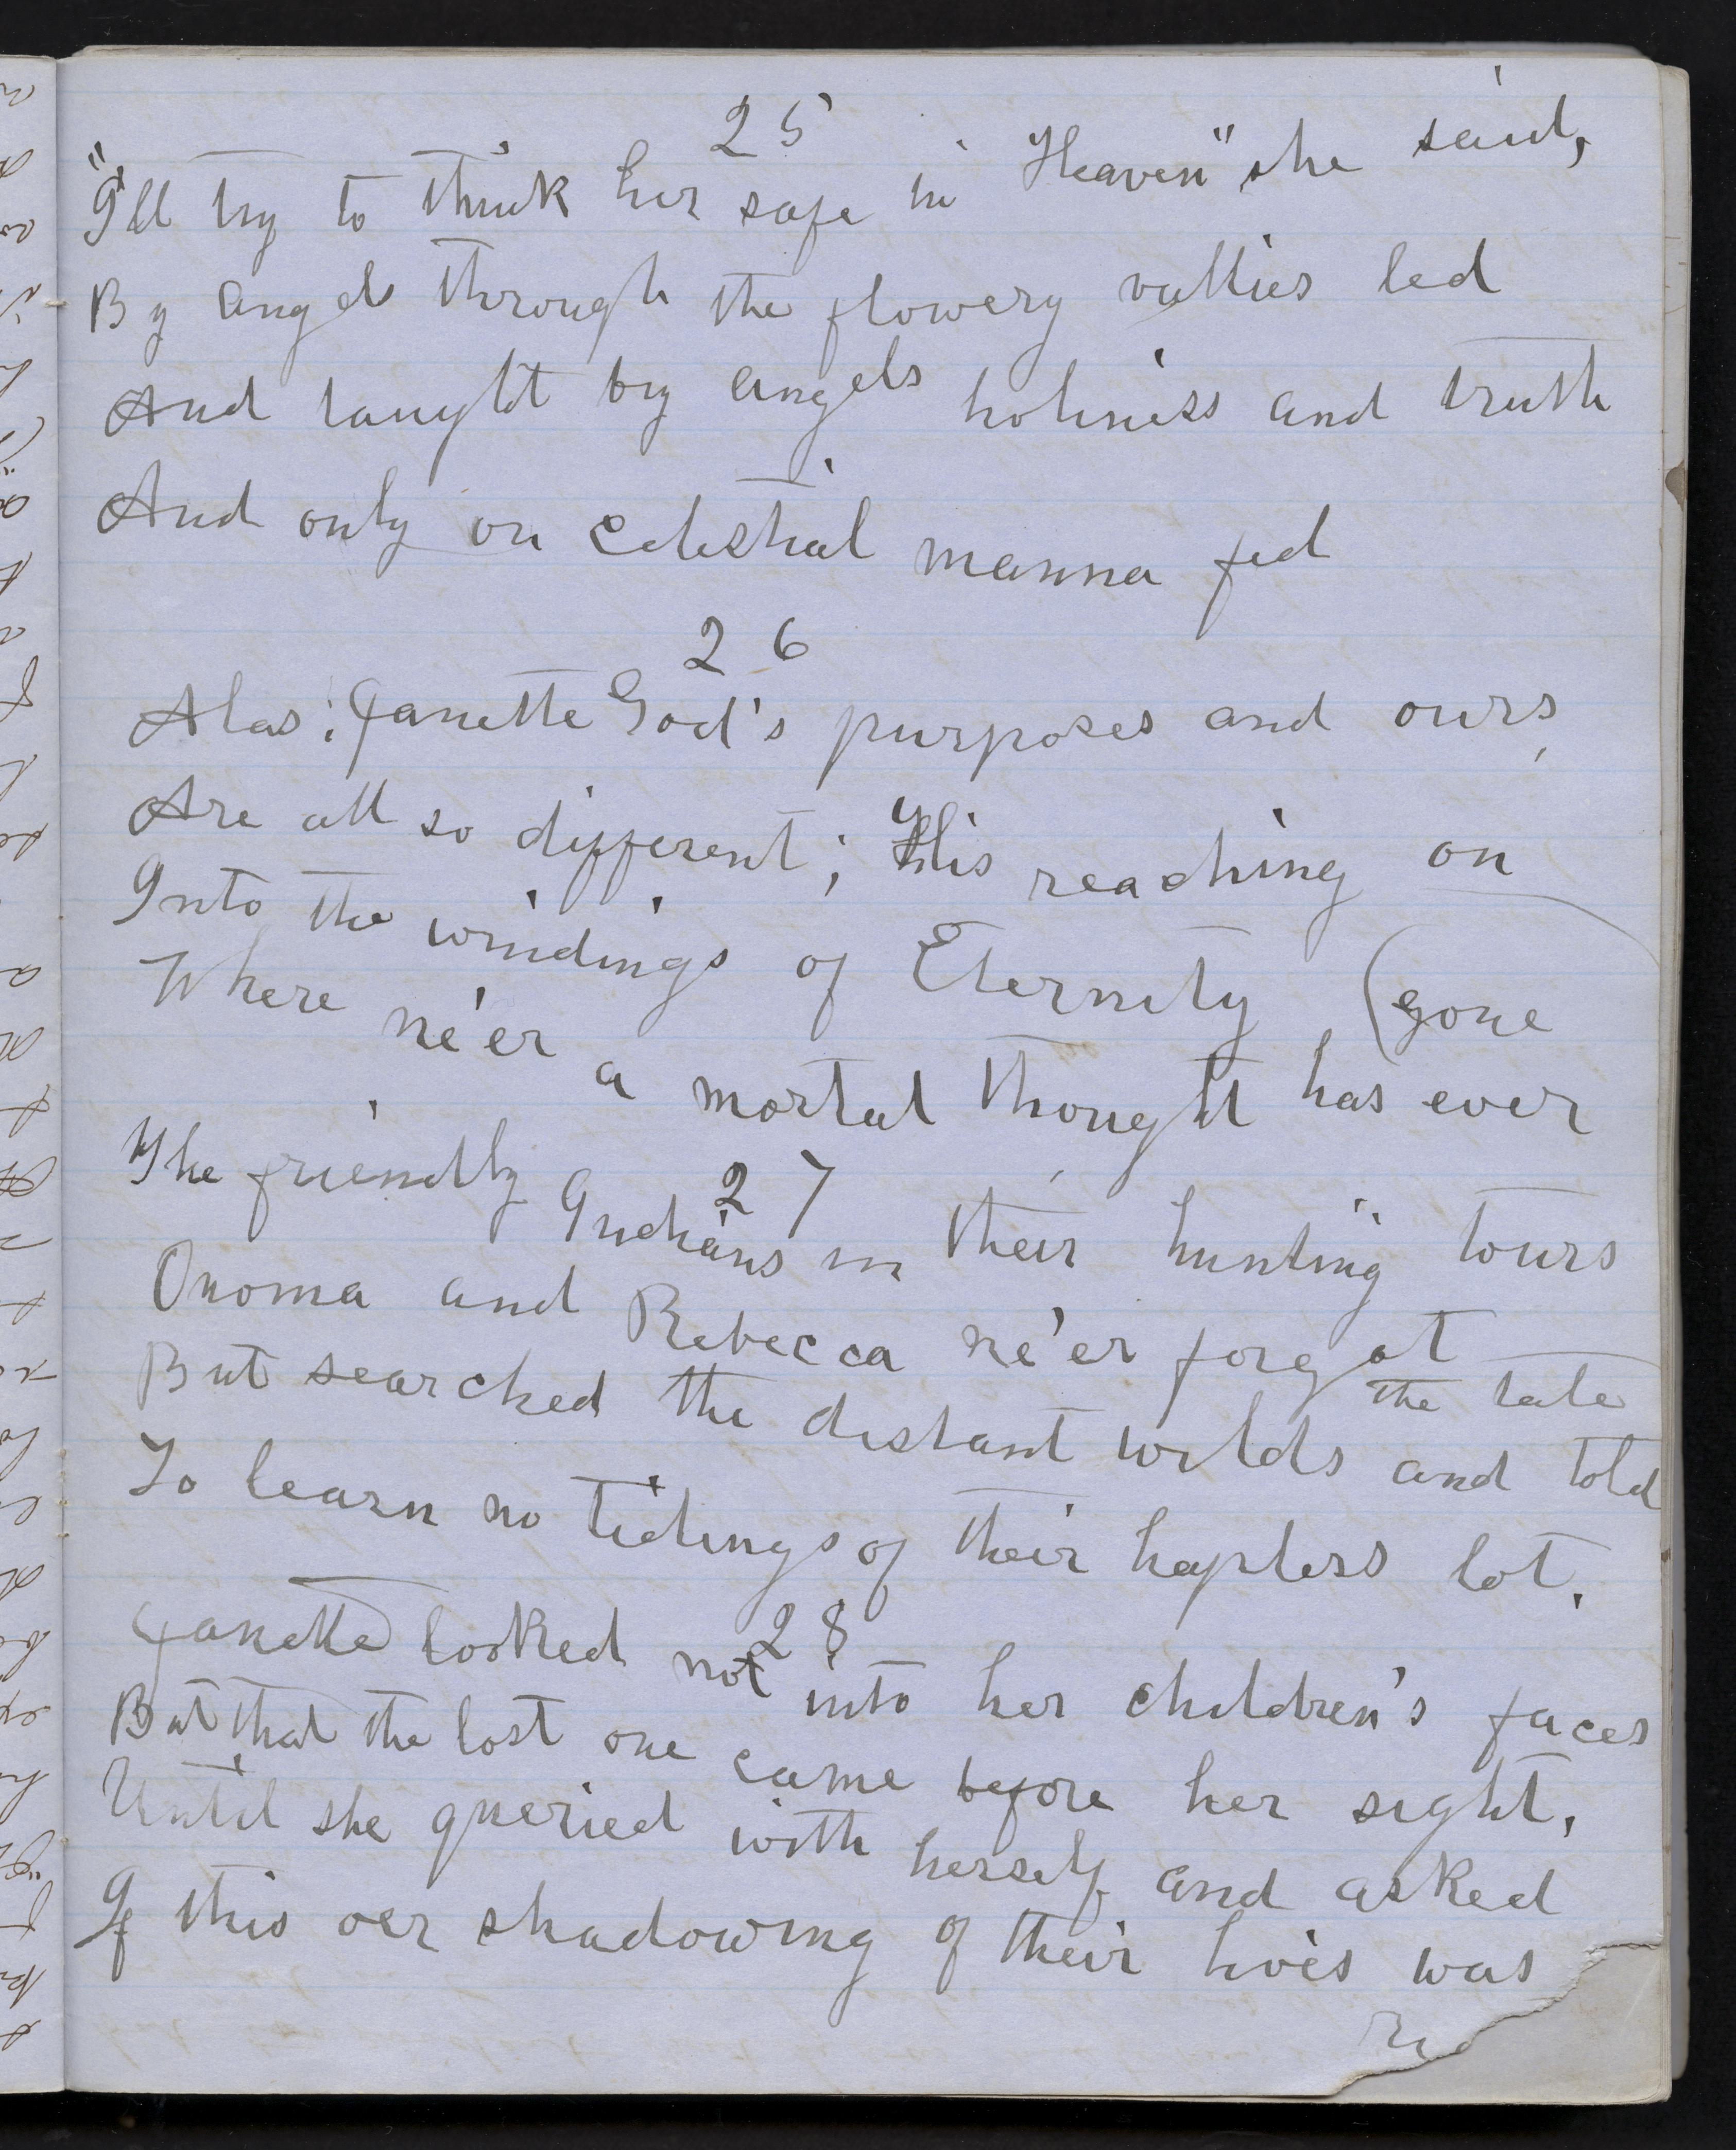 25
"I'll try to think her safe in Heaven" she said,
By angels through the flowery vallies led
And taught by angels holiness and truth
And only on celestial manna fed
26
Alas! Janette God's purposes and ours,
Are all so different; His reaching on
Into the windings of Eternity
(gone
Where ne'er a mortal thought has ever
27
The friendly Indians in their hunting tours
Onoma and Rebecca ne'er forgot
the tale
But searched the distant wilds and told
To learn no tidings of their hapless lot.
28
Janette looked not into her children's faces
But that the lost one came before her sight,
Until she queried with herself and asked
If this oer shadowing of their lives was